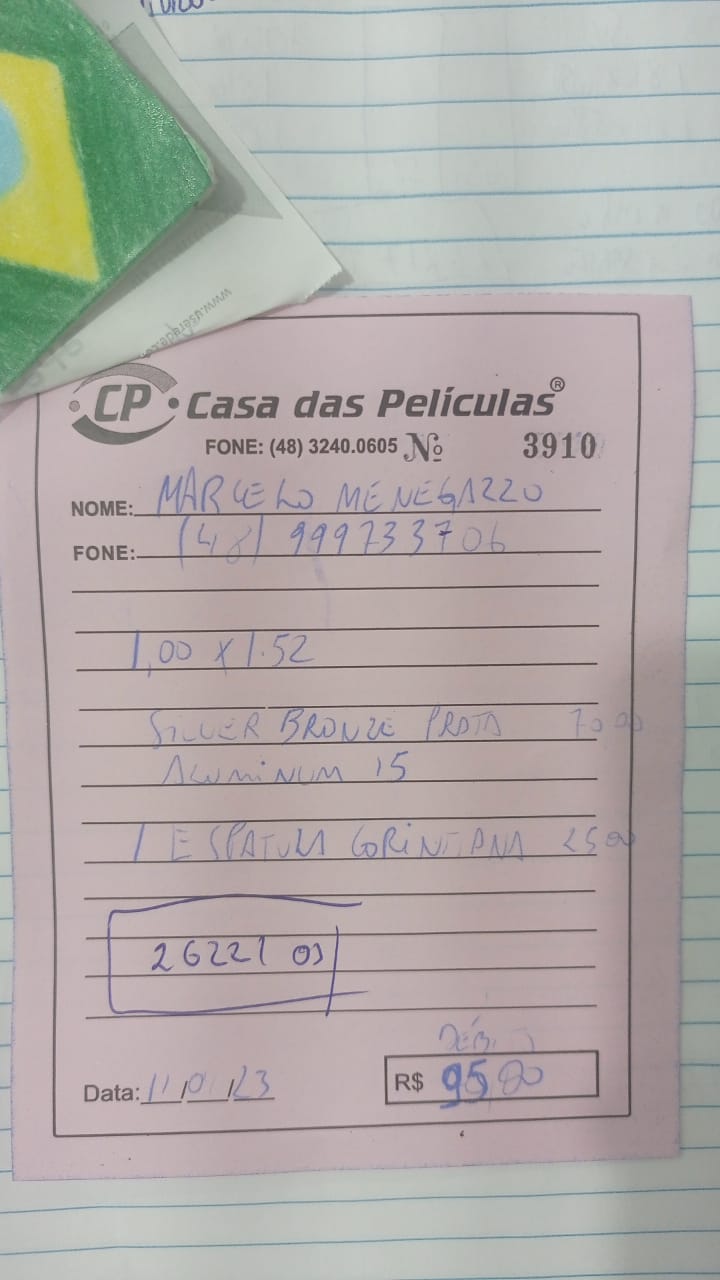 www.userede.co
CP Casa das Películas®
FONE: (48) 3240.0605 Nº 3910
NOME: MARCELO MENEGAZZO
FONE: (48) 999733706
1,00 X 1.52
SILVER BRONZE PRATA 70,00
ALUMINUM 15
1 ESPATULA CORINTIANA 25,00
26221 OS
DÉBITO
Data: 11/01/23 R$ 95,00